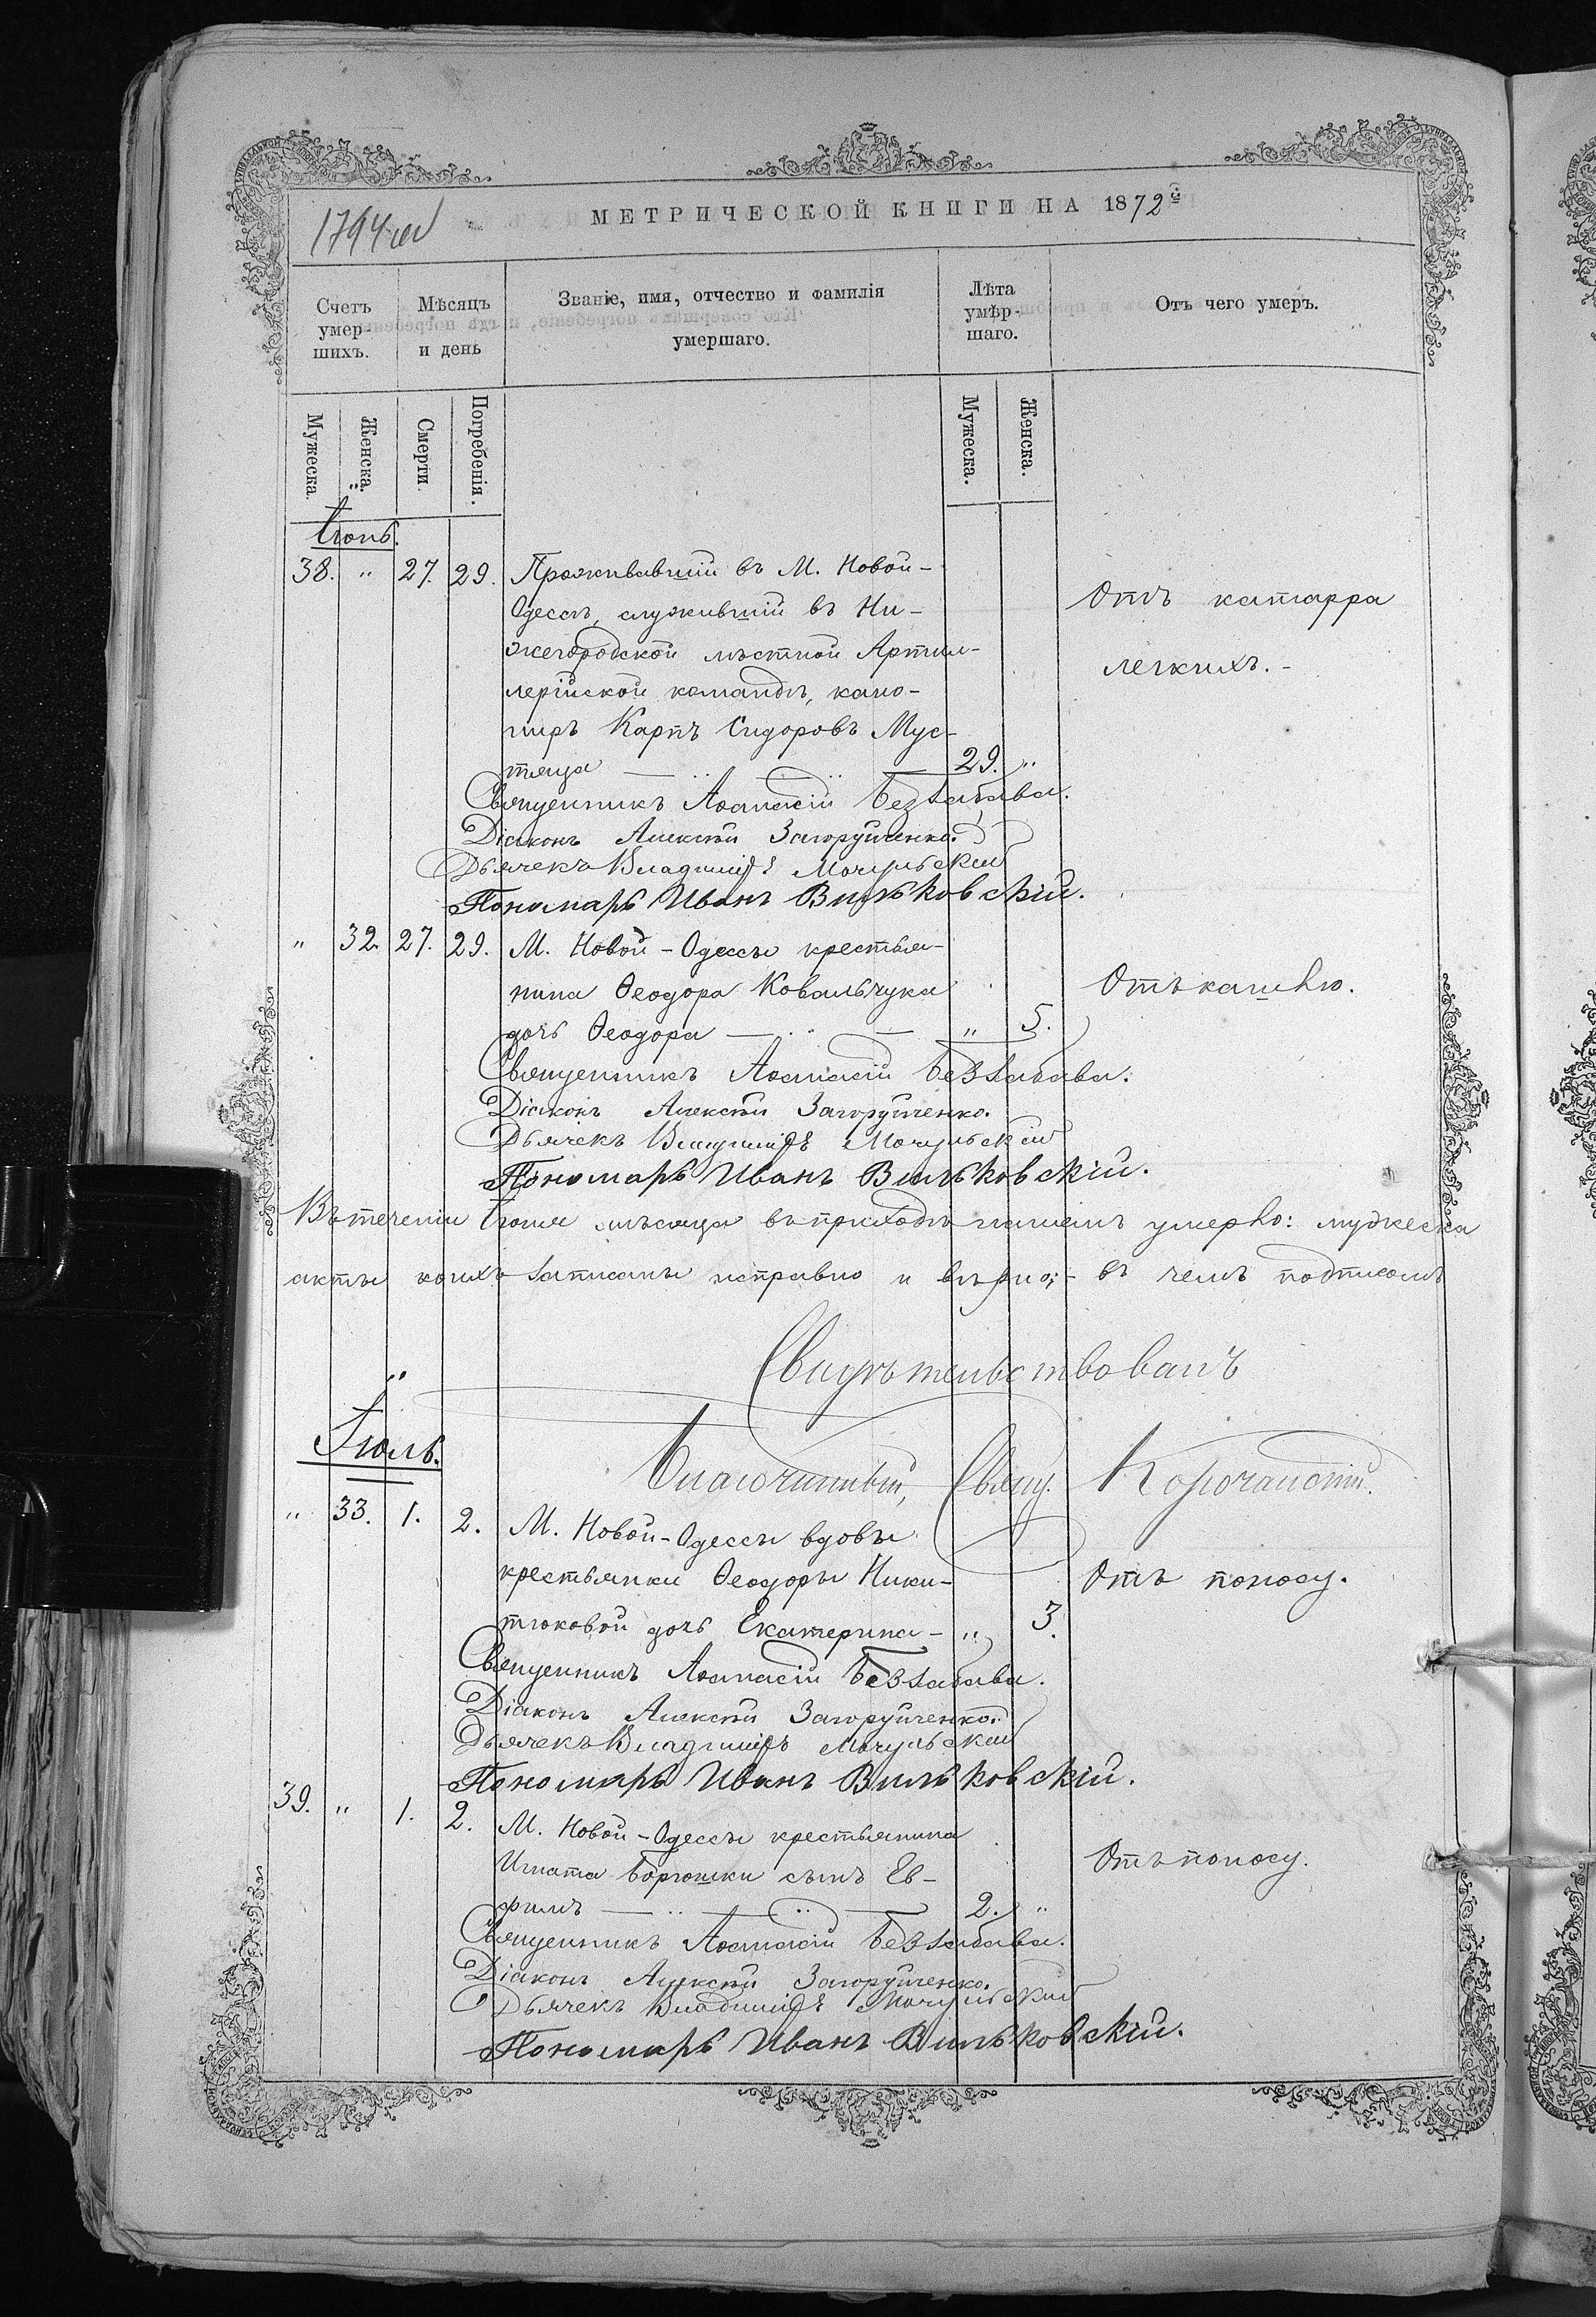 1794 об
МЕТРИЧЕСКОЙ КНИГИ НА 1872й
Счетъ умер-шихъ.
Мѣсяцъ и день
Званіе, имя, отчество и фамилія умершаго.
Лѣта умѣр-шаго.
Отъ чего умеръ.
Мужеска.
Женска.
Смерти.
Погребенія.
Мужеска.
Женска.
Іюнь.
38. " 27. 29. Проживавшій въ М. Новой-
Одессѣ, служившій въ Ни-
жегородской мѣстной Артил-
лерійской командѣ, кано-
ниръ Карпъ Сидоровъ Мус-
тяца 29. "
Отъ катарра
легкихъ.-
Священникъ Аѳанасій Беззабава.
Діаконъ Алексѣй Загоруйченко.
Дьячекъ Владиміръ Мочульскій
Пономарь Иванъ Вильковскій.
" 32. 27. 29. М. Новой-Одессы крестья-
нина Ѳеодора Ковальчука
дочь Ѳеодора " 5.
Отъ кашлю.
Священникъ Аѳанасій Беззабава.
Діаконъ Алексѣй Загоруйченко.
Дьячекъ Владиміръ Мочульскій
Пономарь Иванъ Вильковскій.
Въ теченіи Іюня мѣсяца въ приходѣ нашемъ умерло: мужеска
акты коихъ записаны исправно и вѣрно;- въ чемъ подписомъ
Свидѣтельствовалъ
Благочинный, Свящ.
Іюль.
" 33. 1. 2. М. Новой-Одессы вдовы
крестьянки Ѳеодоры Ники-
тюковой дочь Екатерина- " 3.
Отъ поносу.
Священникъ Аѳанасій Беззабава.
Діаконъ Алексѣй Загоруйченко.
Дьячекъ Владиміръ Мочульскій
Пономарь Иванъ Вильковскій.
39. " 1. 2. М. Новой-Одессы крестьянина
Игната Борюшки сынъ Ев-
фимъ 2. "
Отъ поносу.
Священникъ Аѳанасій Беззабава.
Діаконъ Алексѣй Загоруйченко.
Дьячекъ Владиміръ Мочульскій
Пономарь Иванъ Вильковскій.